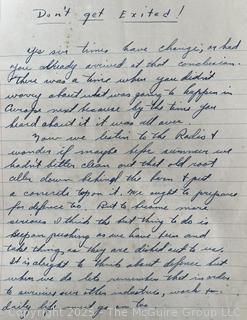 Don't get Exited!
Yes sir times have change, or had
you already arrived at that conclusion.
There was a time when you didn't
worry about what was going to happen in
Europe next because by the time you
heard about it it was all over.
Now we listen to the Radio &
wonder if maybe before summer we
hadn't better clean out that old root
celler down behind the barn & put
a concrete top on it. We ought to prepare
for defence too. But to become more
serious I think the best thing to do is
keep on pushing as we have been and
take things as they are dished out to us.
It is alright to think about defence but
when we do lets remember that in order
to survive our other industries, work &
daily must go on too.
Copyright 2025 - The McGuire Group LLC